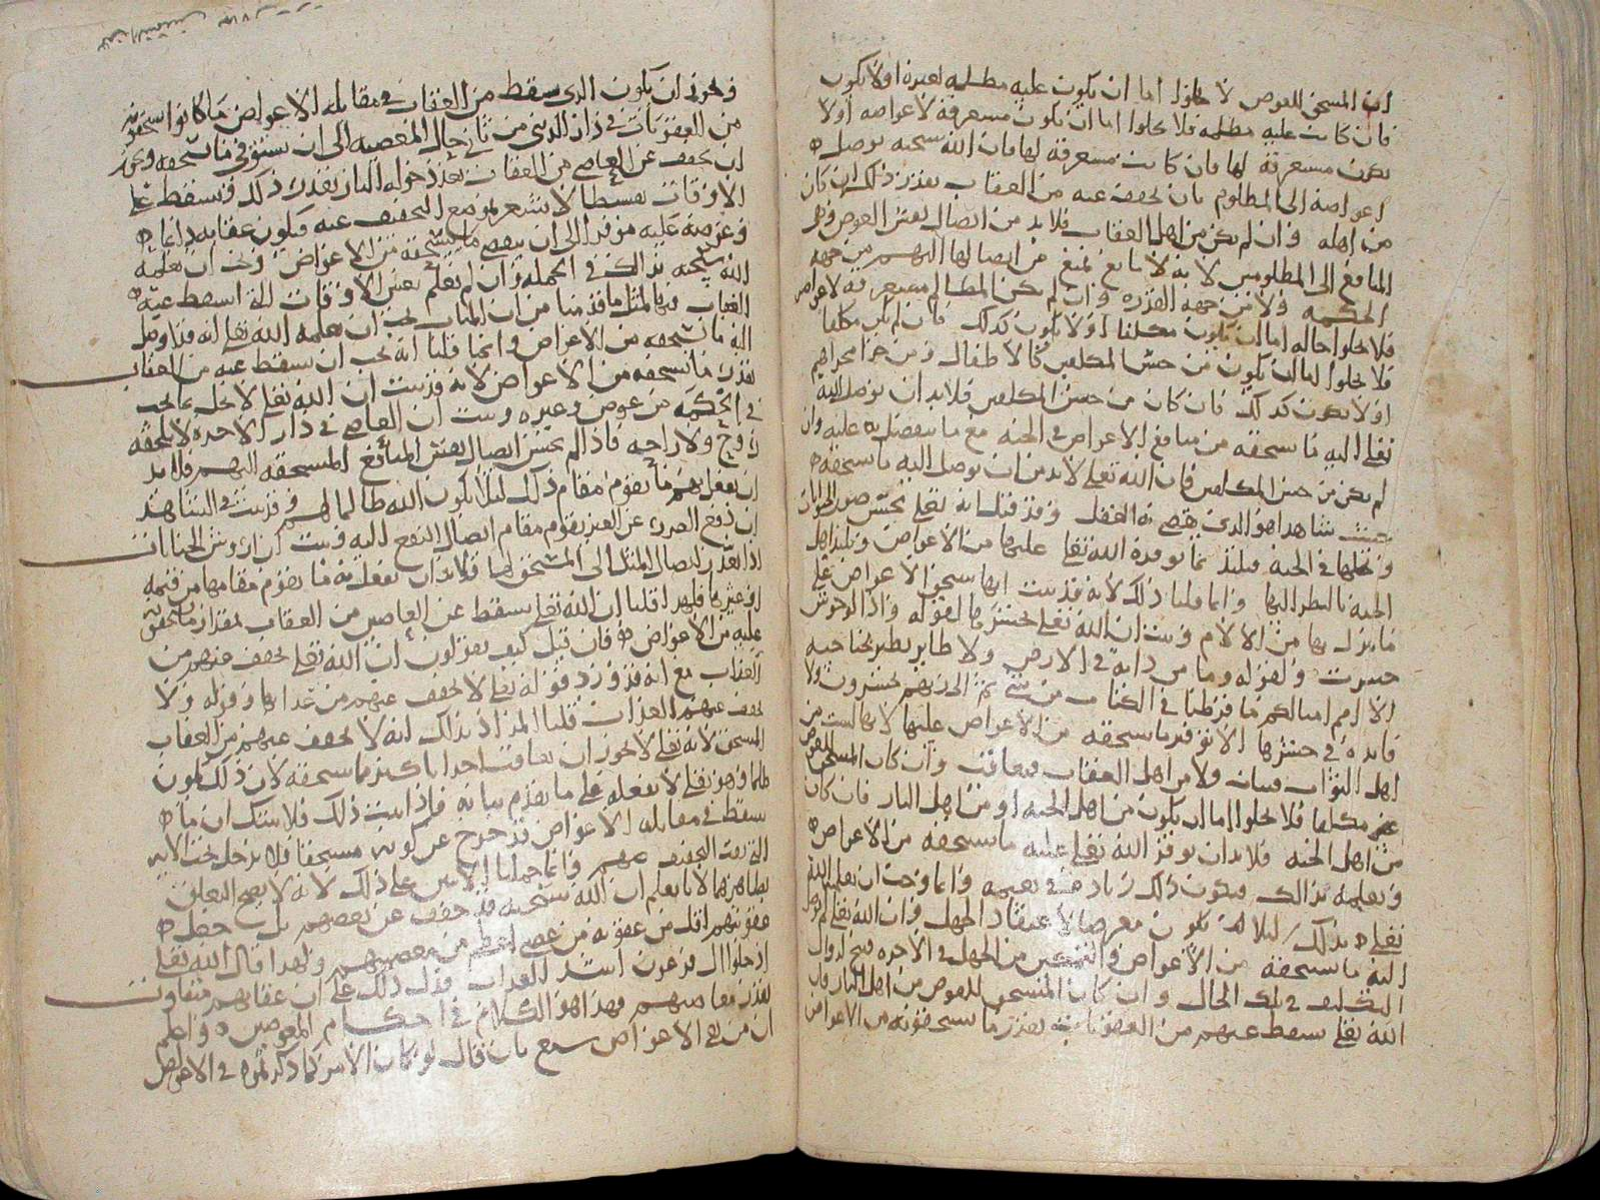 ان المستحق للعوض لا يخلوا اما ان يكون عليه مظلمه لغيره اولا يكون
فان كانت عليه مظلمه فلا يخلوا اما ان يكون مستغرقة لاعواضه اولا
يكون مستغرقة لها فان كانت مستغرقة لها فان الله سبحنه يوصل
اعواضه الى المظلوم بان يخفف عنه من العقاب بقدر ذلك ان كان
من اهله وان لم يكن من اهل العقاب فلا بد من ايصال بعض العوض وهي
المنافع الى المظلومين لانه لا مانع يمنع من ايصالها اليهم من جهه
الحكمه ولا من جهه القدره وان لم يكن المظالم مستغرقة لاعواضه
فلا يخلوا حاله اما ان يكون مكلفا اولا يكون كذلك فان لم يكن مكلفا
فلا يخلوا اما ان يكون من جنس المكلفين كالاطفال ومن جرا مجراهم
اولا يكون كذلك فان كان من جنس المكلفين فلا بد ان يوصل الله
تعلى اليه ما يستحقه من منافع الاعواض في الجنه مع ما يتفضل به عليه وان
لم يكن من جنس المكلفين فان الله تعلى لا بد من ان يوصل اليه ما يستحقه
شاهدا هو الذي يقضي به العقل وقد قيل انه تعلى يحسن صور الحيوانات
ويجعلها في الجنة فيلتذ بما يوفره الله تعلى عليها من الاعواض ويلتذ اهل
الجنه بالنظر اليها وانما قلنا ذلك لانه قد ثبت انها تستحق الاعواض على
ما ينزل بها من الالام وثبت ان الله تعلى يحشرها لقوله واذا الوحوش
حشرت ولقوله وما من دابة في الارض ولا طاير يطير بجناحيه
الا امم امثالكم ما فرطنا في الكتاب من شي ثم الى ربهم يحشرون ولا
فايدة في حشرها الا توفير ما تستحقه من الاعواض عليها لانها ليست من
اهل الثواب فتثاب ولا من اهل العقاب فتعاقب وان كان المستحق للعوض
مكلفا فلا يخلوا اما ان يكون من اهل الجنه او من اهل النار فان كان
من اهل الجنه فلا بد ان يوفر الله تعلى عليه ما يستحقه من الاعواض
ويعلمه بذلك فيكون ذلك زيادة في نعيمه وانما وجب ان يعلمه الله
تعلى بذلك ليلا يكون معرضا لاعتقاد الجهل وان الله تعلى لم يوصل
اليه ما يستحقه من الاعواض والتمكين من الجهل في الاخره قبيح لزوال
التكليف في تلك الحال وان كان المستحق للعوض من اهل النار فان
الله تعلى يسقط عنهم من العقوبات بقدر ما يستحقونه من الاعواض
ويجوز ان يكون الذي يسقط من العقاب في مقابله الاعواض ما كانوا يستحقونه
من العقوبات في دار الدنيا من ثاني حال المعصيه الى ان يستوفي ما يستحقه ويجوز
ان يخفف عن العاصي من العقاب بعد دخوله النار بقدر ذلك فيسقط على
الاوقات تقسيطا لا يشعر بموقع التخفيف عنه فيكون عقابه دائما
وعوضه عليه موفرا الى ان يتقضى ما يستحقه من الاعواض ويجب ان يعلمه
الله سبحنه بذلك في الجمله وان لم يعلم بعض الاوقات التي اسقط عنه
العقاب فيها لمثل ما قدمنا من ان المثاب يجب ان يعلمه الله تعلى انه قد اوصل
اليه ما يستحقه من الاعواض وانما قلنا انه يجب ان يسقط عنه من العقاب
بقدر ما يستحقه من الاعواض لانه قد ثبت ان الله تعلى لا يخل بما يجب
في الحكمه من عوض وغيره وثبت ان العاصي في دار الاخره لا يلحقه
روح ولا راحه فاذا لم يحسن ايصال بعض المنافع المستحقه اليهم فلا بد
ان يفعل بهم ما يقوم مقام ذلك ليلا يكون الله ظالما لهم وقد ثبت في الشاهد
ان دفع الضرر عن الغير يقوم مقام ايصال النفع اليه وثبت ان اروش الجنايات
اذا تعذر ايصال المثل الى المستحق لها فلا بد ان يفعل به ما يقوم مقامها من قيمه
او غيرها فلهذا قلنا ان الله تعلى يسقط عن العاصين من العقاب بمقدار ما يستحقونه
عليه من الاعواض فان قيل كيف تقولون ان الله تعلى يخفف عنهم من
العذاب مع انه قد ورد قوله تعلى لا يخفف عنهم من عذابها وقوله ولا
يخفف عنهم العذاب قلنا المراد بذلك انه لا يخفف عنهم من العقاب
المستحق لانه تعلى لا يجوز ان يعاقب احدا باكثر مما يستحقه لان ذلك يكون
ظلما وهو تعلى لا يفعله على ما تقدم بيانه فاذا ثبت ذلك فلا شك ان ما
سقط في مقابله الاعواض قد خرج عن كونه مستحقا فلا يدخل تحت الايه
التي نفت التخفيف عنهم وانما حملنا الايتين على ذلك لانه لا يصح التعلق
بظاهرهما لانا نعلم ان الله سبحنه قد خفف عن بعضهم بان جعل
عقوبتهم اقل من عقوبه من عصى اعظم من معصيتهم ولهذا قال الله تعلى
ادخلوا ال فرعون اشد العذاب فدل ذلك على ان عقابهم متفاوت
بقدر معاصيهم فهذا هو الكلام في احكام المعوضين واعلم
ان من نفى الاعواض شنع بان قال لو كان الامر كما ذكرتموه في الاعواض